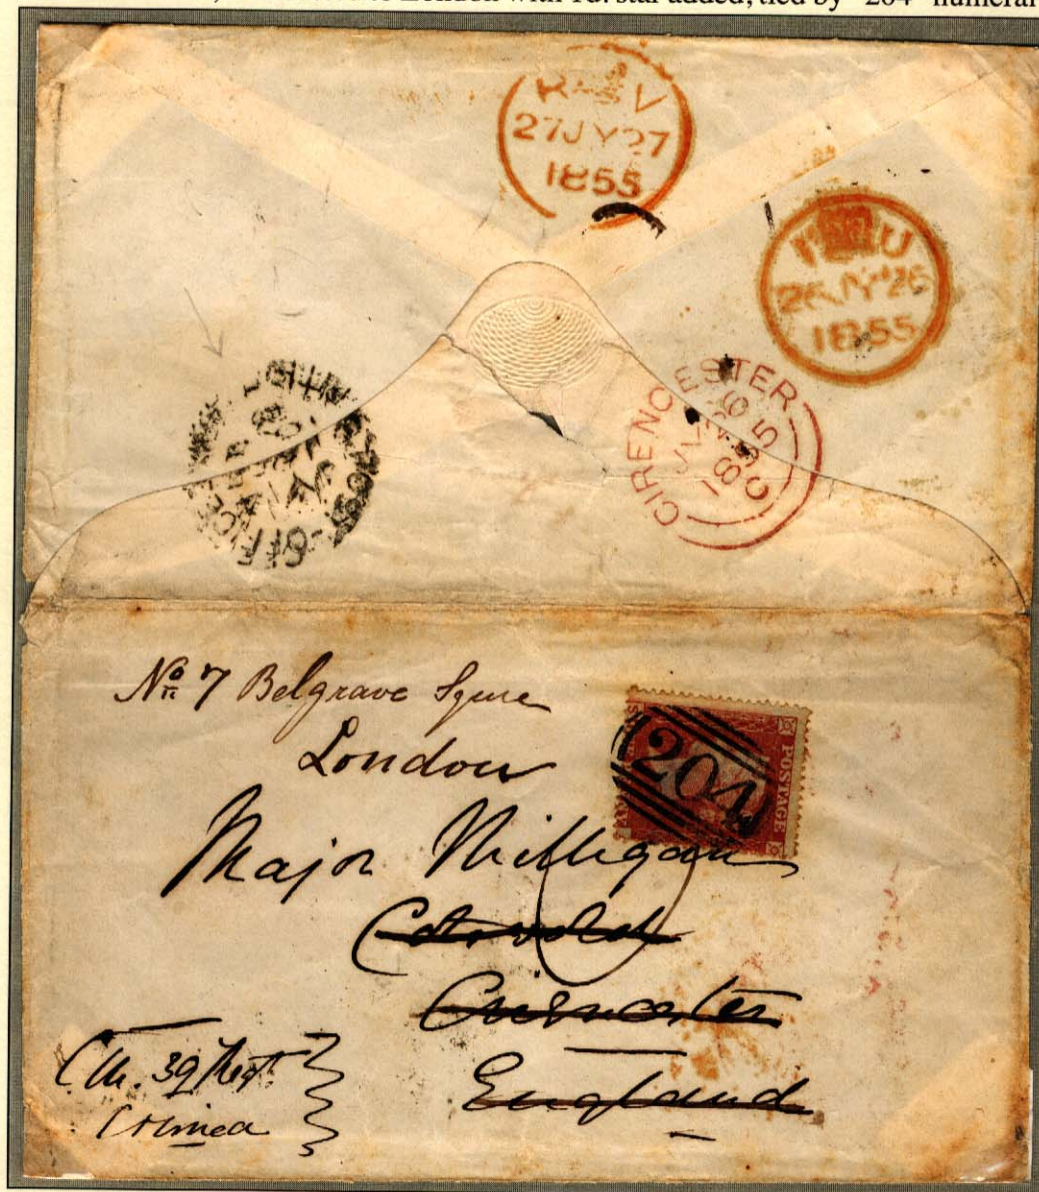 to London with 1d. star added, tied by "204" numeral
27 JY 27
1855
26 JY 26
1855
CIRENCESTER
JY 26
1855
C
POST-OFFICE
No 7 Belgrave Squre
London
204
POSTAGE
Major Milligan
Cotswold
Cirencester
England
39 Regt
Crimea